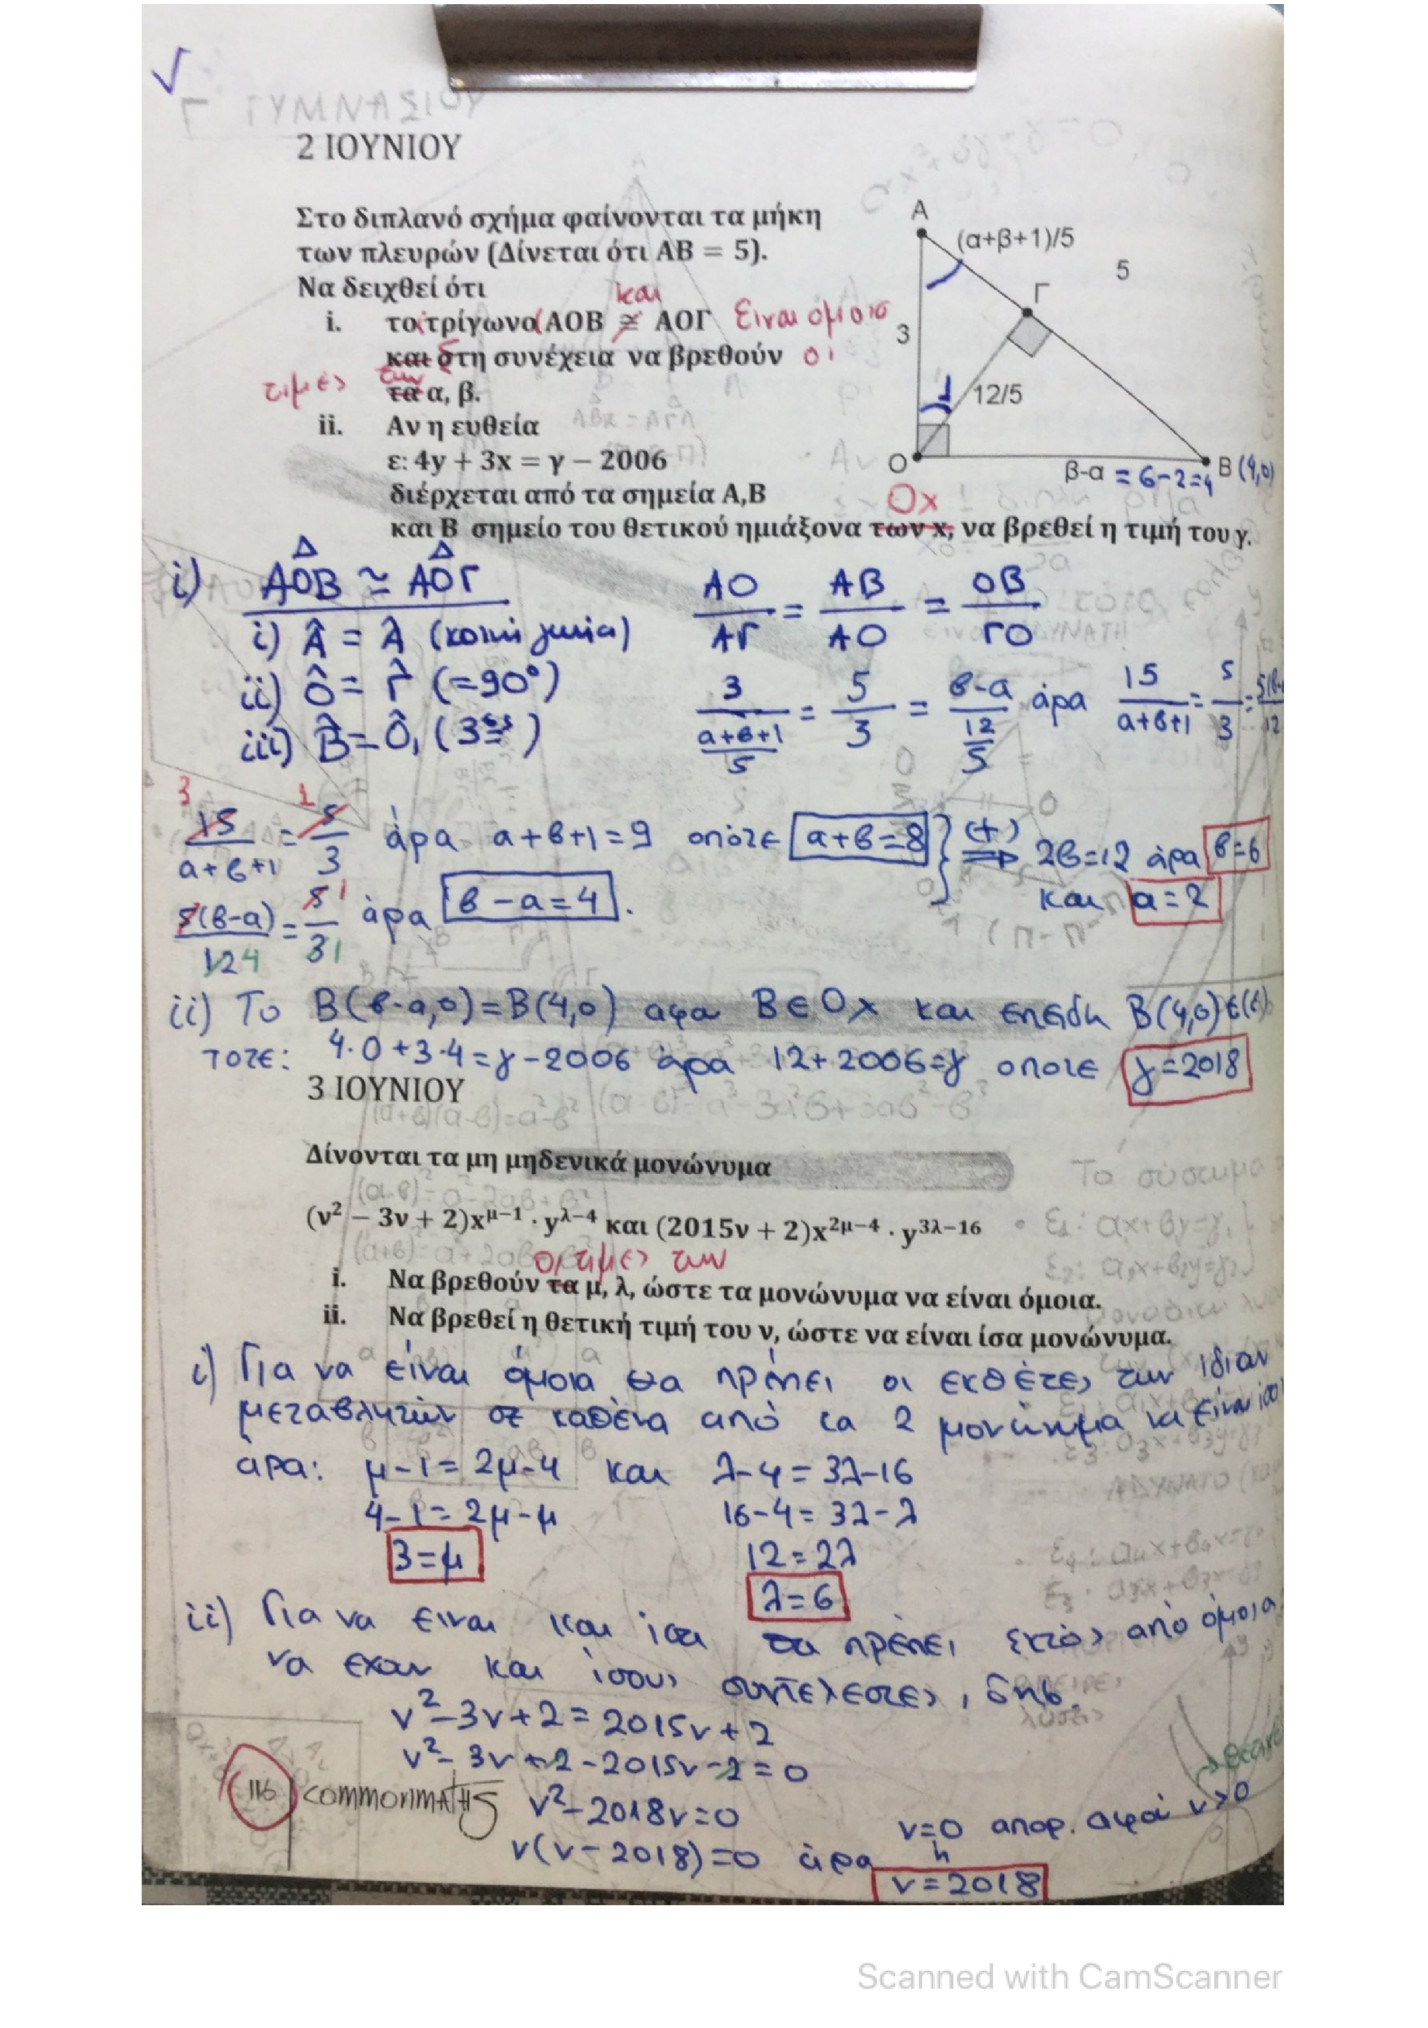 Γ ΓΥΜΝΑΣΙΟΥ
2 ΙΟΥΝΙΟΥ
Στο διπλανό σχήμα φαίνονται τα μήκη
των πλευρών (Δίνεται ότι ΑΒ = 5).
Να δειχθεί ότι
και
i. τα τρίγωνα ΑΟΒ ≅ ΑΟΓ Είναι όμοια
και στη συνέχεια να βρεθούν οι
τιμές των
τα α, β.
ii. Αν η ευθεία
ε: 4y + 3x = γ − 2006
διέρχεται από τα σημεία Α,Β
Οx
και Β σημείο του θετικού ημιάξονα των x, να βρεθεί η τιμή του γ.
Α
(α+β+1)/5
5
Γ
3
1
12/5
Ο
β-α = 6-2=4
Β (4,0)
i) ΑΟΒ ≃ ΑΟΓ
i) Â = Â (κοινή γωνία)
ii) Ô = Γ̂ (=90°)
iii) B̂ = Ô₁ (3ες)
ΑΟ/ΑΓ = ΑΒ/ΑΟ = ΟΒ/ΓΟ
3/((α+β+1)/5) = 5/3 = (β-α)/(12/5) άρα 15/(α+β+1) = 5/3 =
15/(α+β+1) = 5/3 άρα α+β+1=9 οπότε α+β=8 } (+) ⇒ 2β=12 άρα β=6
και α=2
5(β-α)/12 = 5/3 άρα β-α=4.
ii) Το Β(β-α,0)=Β(4,0) αφού Β∈Οx και επειδή Β(4,0)∈(ε)
τότε: 4·0+3·4=γ-2006 άρα 12+2006=γ οπότε γ=2018
3 ΙΟΥΝΙΟΥ
Δίνονται τα μη μηδενικά μονώνυμα
(ν² − 3ν + 2)x^{μ−1} · y^{λ−4} και (2015ν + 2)x^{2μ−4} · y^{3λ−16}
οι τιμές των
i. Να βρεθούν τα μ, λ, ώστε τα μονώνυμα να είναι όμοια.
ii. Να βρεθεί η θετική τιμή του ν, ώστε να είναι ίσα μονώνυμα.
i) Για να είναι όμοια θα πρέπει οι εκθέτες των ίδιων
μεταβλητών σε καθένα από τα 2 μονώνυμα να είναι ίσοι
άρα: μ-1=2μ-4 και λ-4=3λ-16
4-1=2μ-μ 16-4=3λ-λ
3=μ 12=2λ
λ=6
ii) Για να είναι και ίσα θα πρέπει εκτός από όμοια
να έχουν και ίσους συντελεστές, δηλ.
ν²-3ν+2=2015ν+2
ν²-3ν+2-2015ν-2=0
116 commonmaths
ν²-2018ν=0
ν=0 απορ. αφού ν>0
ν(ν-2018)=0 άρα ή
ν=2018
Scanned with CamScanner